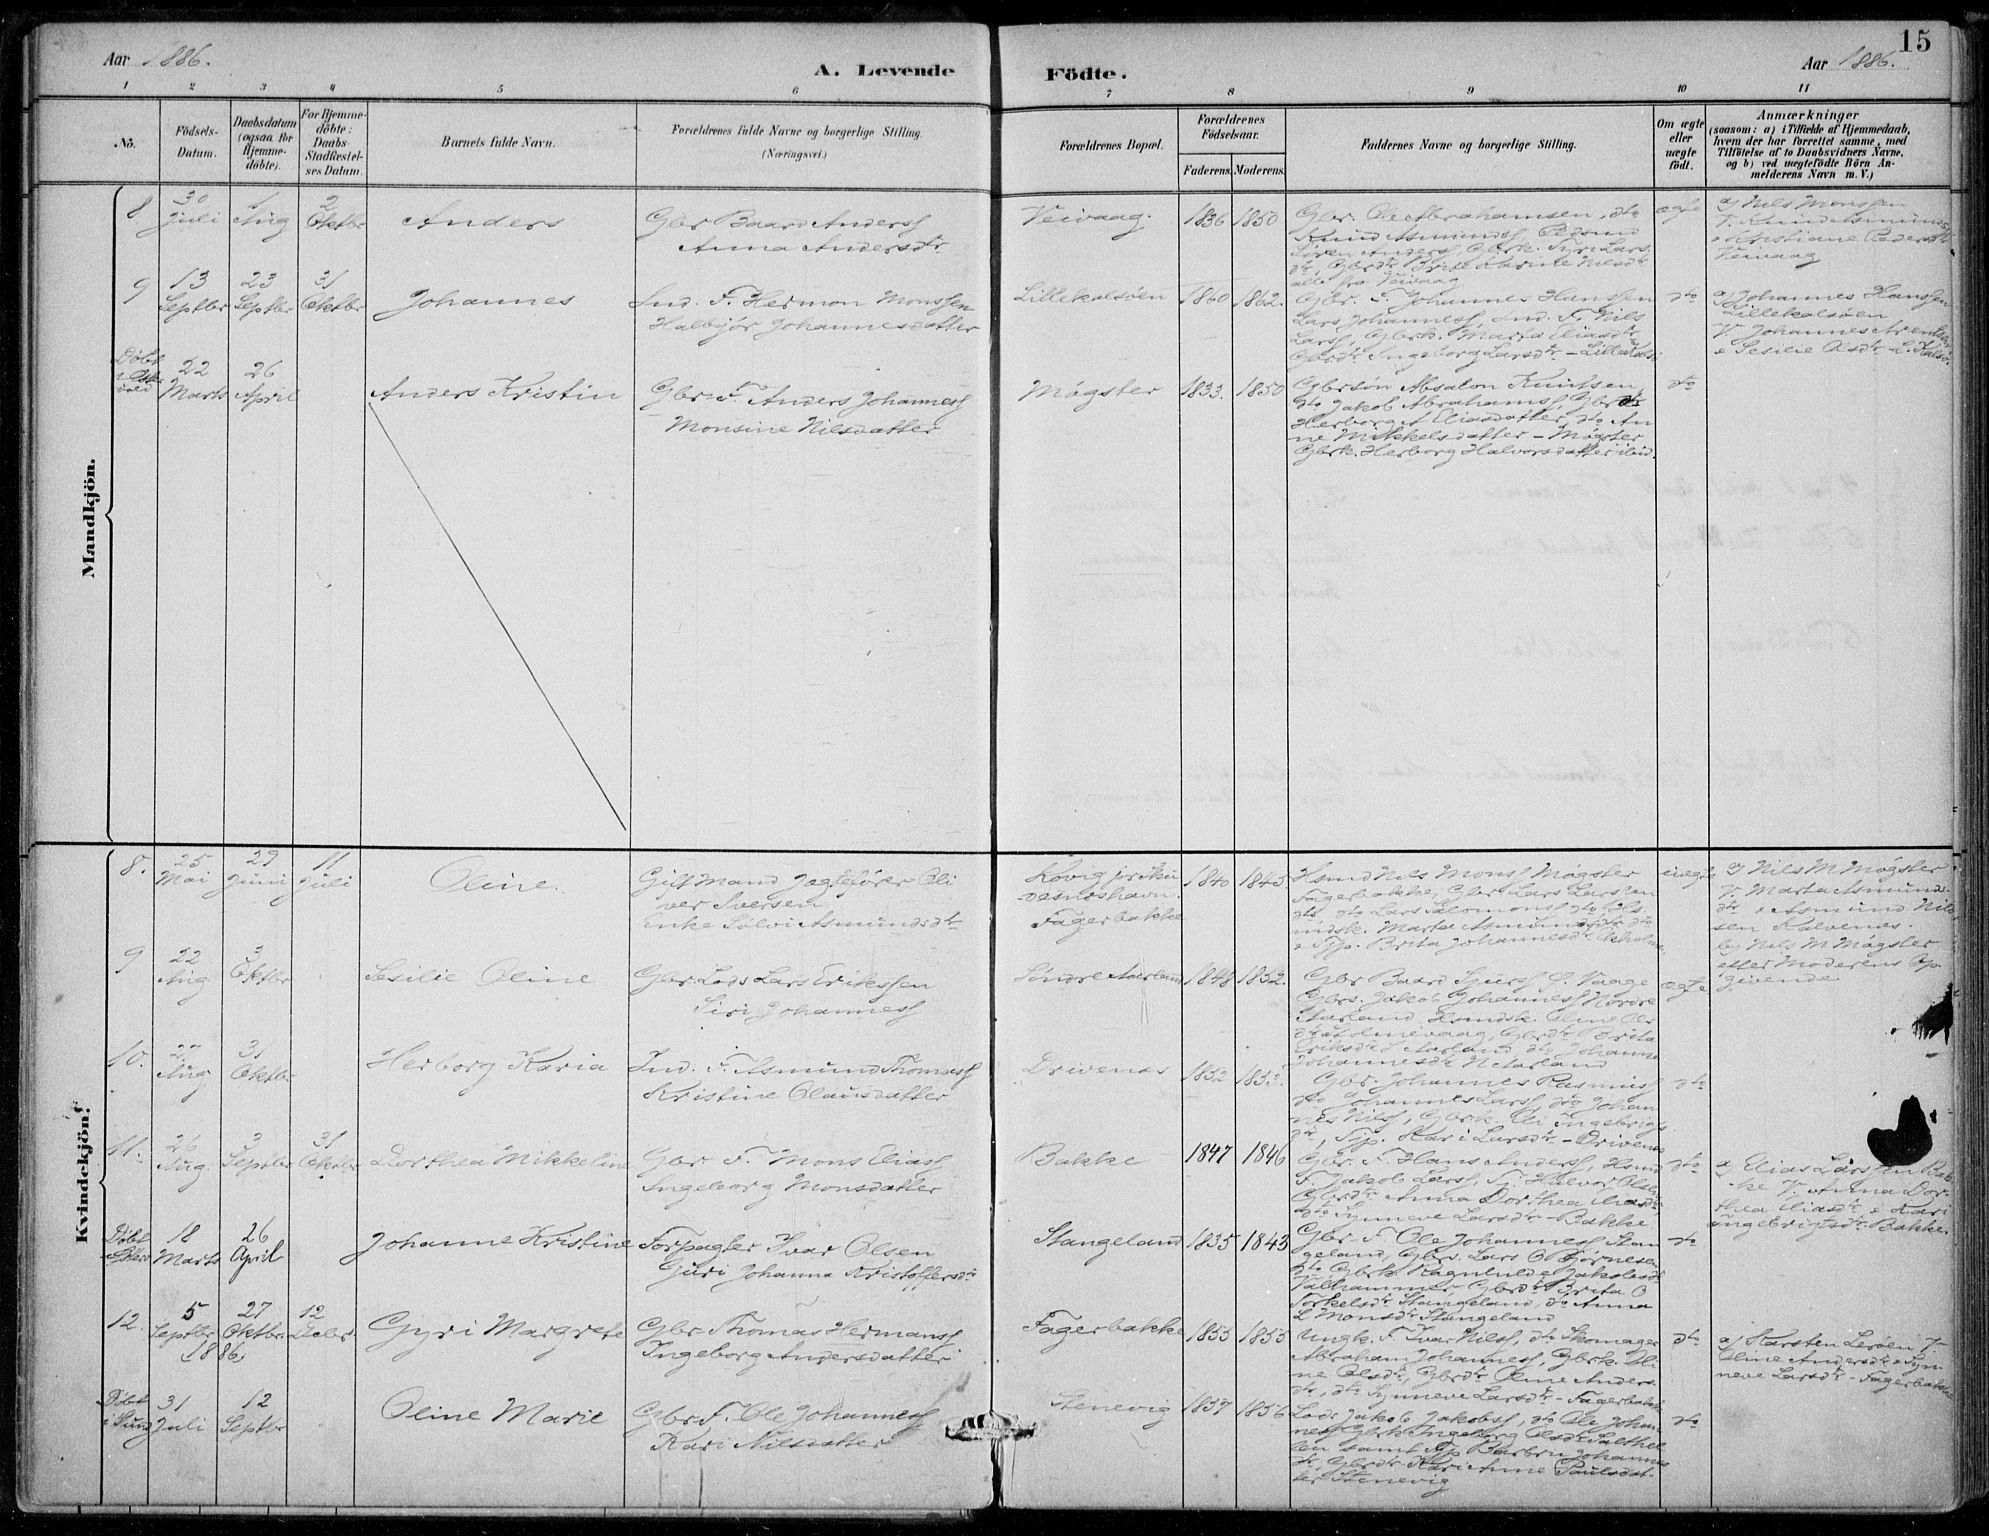 15
Aar 1886.
A. Levende
Födte.
Aar 1886.
1 2 3 4 5 6 7 8 9 10 11
No.
Födsels-Datum.
Daabsdatum (ogsaa for Hjemmedöbte).
For Hjemmedöbte: Daabs-Stadfæstelses Datum.
Barnets fulde Navn.
Forældrenes fulde Navne og borgerlige Stilling.
(Næringsvei.)
Forældrenes Bopæl.
Forældrenes Födselsaar.
Faderens. Moderens.
Faddernes Navne og borgerlige Stilling.
Om ægte eller uægte födt.
Anmærkninger
(saasom: a) i Tilfælde af Hjemmedaab, hvem der har forrettet samme, med Tilföielse af to Daabsvidners Navne, og b) ved uægtefödte Börn Anmelderens Navn m. V.)
Mandkjön.
8
30 Juli
1 Aug
2 Oktbr
Anders
Gbr Baard Anderss
Anna Andersdtr
Veivaag.
1836 1850
Gbr. Ole Abrahamsen, dto
Knud Asmundss, Pedsmd
Søren Anderss, Gbrk. Siri Lars
dtr, Gbrdtr Brite Karine Nilsdtr
alle fra Veivaag
ægte
a) Nils Monssen
V. Knud Asmunds
& Kristiane Pedersdtr
Veivaag
9
13 Septbr
23 Septbr
31 Oktbr
Johannes
Ind. F. Hermon Monssen
Halbjør Johannesdatter
Lillekalsøen
1860 1862.
Gbr. F. Johannes Hanssen
Lars Johanness, Ind. F. Nils
Larss, Gbrk. Marta Eliasdtr
Gbrdtr Ingeborg Larsdtr - Lillekals
dto
a) Johannes Hanssen
Lillekalsøen
V. Johannes Arentsen
& Sesilie Olsdtr - L. Kalsø.
Døbt
22 Marts
26 April
Anders Kristin
Gbr F. Anders Johanness
Monsine Nilsdatter
Møgster
1833. 1850
Gbrsøn Absalon Knutsen
dto Jakob Abrahams, Gbrdtr
Herborg A Eliasdatter, dto An
ne Mikkelsdatter - Møgster
Gbrk. Herborg Halvorsdatter ibid.
dto
Kvindekjön!
8.
25 Mai
29 Juni
11 Juli
Oline.
Gift Mand Jagtefører Oli
ver Iversen
Enke Sølvi Asmundsdtr
Fagerbakke
1840 1845.
Hsmd Nils Monss Møgster
Fagerbakke, Gbr Lars Larssen
dto, dto Lars Salomons, dto Hs
mdsk. Marta Asmundsdtr dto
& Tjp. Brita Johannesdtr
uægte
a) Nils M Møgster
V. Marta Asmunds
dtr & Asmund Nils
sen Kalvenes.
b) Nils M Møgster
efter Moderens Op
givende
9
22 Aug
3 Oktbr
Sesilie Oline
Gbr. Lods Lars Erikssen
Siri Johanness
Søndre Aarland
1848 1852.
Gbr Baard Sjurss S. Vaage
Gbrs. Jakob Johanness Nordre
Aarland Hsmdsk. Oline Ols
dtr Holmevaag, Gbrdtr Brita
Eriksdtr S Aarland dto Johanne
Johannesdtr N Aarland
ægte
10.
27 Aug
31 Oktbr
Herborg Karia
Ind. F. Asmund Thomass
Kristine Olausdatter
Drivenes
1852 1853.
Gbr. Johannes Rasmuss
dto Johannes Larss, dto Johan
nes Nilss, Gbrk. Eli Ingebrigs
dtr, Tjp. Kari Larsdtr - Drivenes
dto
11.
26 Aug
3 Septbr
31 Oktbr
Dorthea Mikkeline
Gbr F. Mons Eliass
Ingeborg Monsdatter
Bakke
1847 1846
Gbr. F. Hans Anderss, Hsmd
F. Jakob Larss, Tj. Halvor Olsen
Gbrdtr Anna Dorthea Eliasdtr
dto Synneve Larsdtr - Bakke
dto
a) Elias Larssen Bak
ke V. Anna Dor
thea Eliasdtr & Kari
Ingebrigtsdtr Bakke.
Døbt
18 Marts
26 April
Johanne Kristine
Forpagter Ivar Olsen
Guri Johanna Kristoffersdtr
Stangeland
1835 1843
Gbr. F. Ole Johanness Stan
geland, Gbrs. Lars O Bjørnesen
dto Gbrk Ragnhild Jakobsdtr
Valhammer, Gbrdtr Brita O
Torkelsdtr Stangeland, dto Anna
L Monsdtr Stangeland
dto
12.
5 Septbr
27 Oktbr.
12 Decbr.
1886,
Gyri Margrete
Gbr Thomas Hermanss
Ingeborg Andersdatter
Fagerbakke
1855 1855
Ungk. F. Ivar Nilss, dto Skomager
Abraham Johanness, Gbrk. Oli
ne Olsdtr, Gbrdtr Oline Anders
dtr, dto Synneve Larsdtr - Fagerbakke
dto
a) Karsten Lerøen V.
Oline Andersdtr & Syn
neve Larsdtr - Fagerbakke
Døbt
i Sund
31 Juli
12 Septbr
Oline Marie
Gbr F. Ole Johanness
Kari Nilsdatter
Stenevig
1857 1856
Lods Jakob Jakobss, dto Ole Johan
ness Gbrk Ingeborg Olsdtr
samt Tjp Barbru Johannes
dtr, Gbrdtr Kari Anne Paulsdat
ter Stenevig
dto